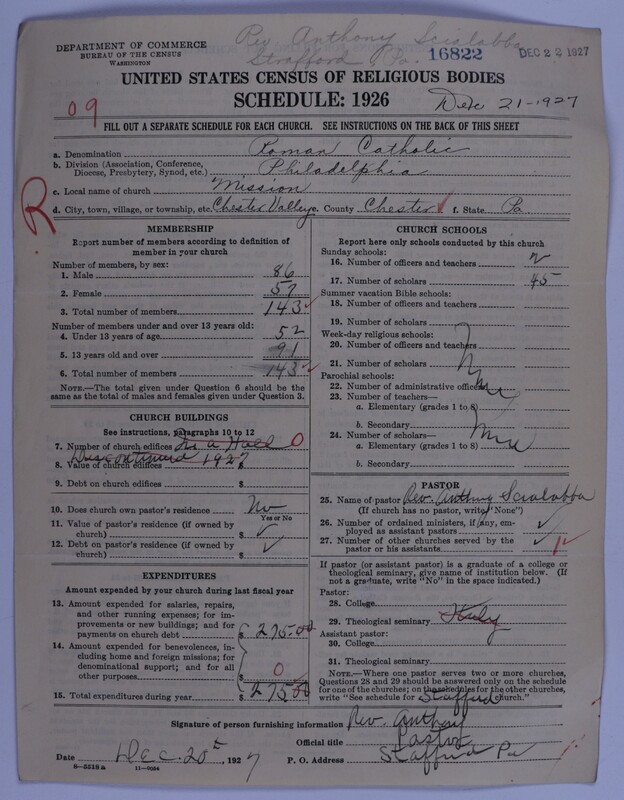 Rev. Anthony Scialabba
Strafford Pa.
DEPARTMENT OF COMMERCE
BUREAU OF THE CENSUS
WASHINGTON
16822
DEC 22 1927
UNITED STATES CENSUS OF RELIGIOUS BODIES
SCHEDULE: 1926
Dec 21-1927
09
FILL OUT A SEPARATE SCHEDULE FOR EACH CHURCH. SEE INSTRUCTIONS ON THE BACK OF THIS SHEET
a. Denomination Roman Catholic
b. Division (Association, Conference, Diocese, Presbytery, Synod, etc.) Philadelphia
c. Local name of church Mission
d. City, town, village, or township, etc. Chester Valley e. County Chester f. State Pa
R
MEMBERSHIP
Report number of members according to definition of member in your church
Number of members, by sex:
1. Male 86
2. Female 57
3. Total number of members 143
Number of members under and over 13 years old:
4. Under 13 years of age 52
5. 13 years old and over 91
6. Total number of members 143
NOTE.—The total given under Question 6 should be the same as the total of males and females given under Question 3.
CHURCH BUILDINGS
See instructions, paragraphs 10 to 12
7. Number of church edifices In a Hall 0
Discontinued 1927
8. Value of church edifices
9. Debt on church edifices $
10. Does church own pastor's residence No
Yes or No
11. Value of pastor's residence (if owned by church) $
12. Debt on pastor's residence (if owned by church) $
EXPENDITURES
Amount expended by your church during last fiscal year
13. Amount expended for salaries, repairs, and other running expenses; for improvements or new buildings; and for payments on church debt $ 275.00
14. Amount expended for benevolences, including home and foreign missions; for denominational support; and for all other purposes $ 0
15. Total expenditures during year $ 275.00
CHURCH SCHOOLS
Report here only schools conducted by this church
Sunday schools:
16. Number of officers and teachers 2
17. Number of scholars 45
Summer vacation Bible schools:
18. Number of officers and teachers
19. Number of scholars
Week-day religious schools:
20. Number of officers and teachers
21. Number of scholars
Parochial schools:
22. Number of administrative officers
23. Number of teachers—
a. Elementary (grades 1 to 8)
b. Secondary
24. Number of scholars—
a. Elementary (grades 1 to 8)
b. Secondary
PASTOR
25. Name of pastor Rev. Anthony Scialabba
(If church has no pastor, write "None")
26. Number of ordained ministers, if any, employed as assistant pastors
27. Number of other churches served by the pastor or his assistants 1
If pastor (or assistant pastor) is a graduate of a college or theological seminary, give name of institution below. (If not a graduate, write "No" in the space indicated.)
Pastor:
28. College
29. Theological seminary Italy
Assistant pastor:
30. College
31. Theological seminary
NOTE.—Where one pastor serves two or more churches, Questions 28 and 29 should be answered only on the schedule for one of the churches; on the schedules for the other churches, write "See schedule for Stafford church."
Signature of person furnishing information Rev. Anthony
Official title Pastor
Date Dec. 20, 1927 P. O. Address Stafford Pa
8-5518 a